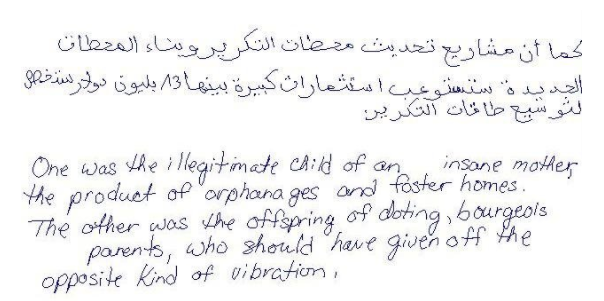 كما أن مشاريع تحديث محطات التكرير وبناء المحطات
الجديدة ستستوعب استثمارات كبيرة بينها 13 بليون دولار ستخصص
لتوسيع طاقات التكرير.
One was the illegitimate child of an insane mother,
the product of orphanages and foster homes.
The other was the offspring of doting, bourgeois
parents, who should have given off the
opposite kind of vibration.